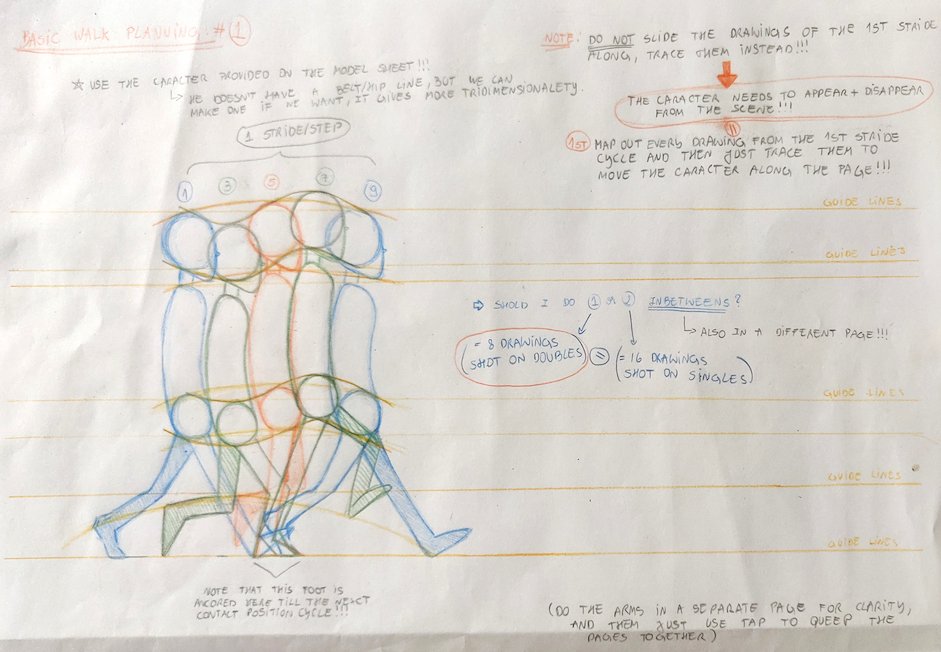 BASIC WALK PLANNING #1
NOTE: DO NOT SLIDE THE DRAWINGS OF THE 1ST STRIDE
ALONG, TRACE THEM INSTEAD!!!
☆ USE THE CARACTER PROVIDED ON THE MODEL SHEET!!!
↳ HE DOESN'T HAVE A BELT/HIP LINE, BUT WE CAN
MAKE ONE IF WE WANT, IT GIVES MORE TRIDIMENSIONALETY.
THE CARACTER NEEDS TO APPEAR + DISAPPEAR
FROM THE SCENE!!!
1 STRIDE/STEP
1ST MAP OUT EVERY DRAWING FROM THE 1ST STRIDE
CYCLE AND THEN JUST TRACE THEM TO
MOVE THE CARACTER ALONG THE PAGE!!!
1 3 5 7 9
GUIDE LINES
GUIDE LINES
⇨ SHOLD I DO 1 OR 2 INBETWEENS?
↳ ALSO IN A DIFFERENT PAGE!!!
= 8 DRAWINGS
SHOT ON DOUBLES
=
(= 16 DRAWINGS
SHOT ON SINGLES)
GUIDE LINES
GUIDE LINES
GUIDE LINES
NOTE THAT THIS FOOT IS
ANCORED HERE TILL THE NEXT
CONTACT POSITION CYCLE!!!
(DO THE ARMS IN A SEPARATE PAGE FOR CLARITY,
AND THEM JUST USE TAP TO QUEEP THE
PAGES TOGETHER)